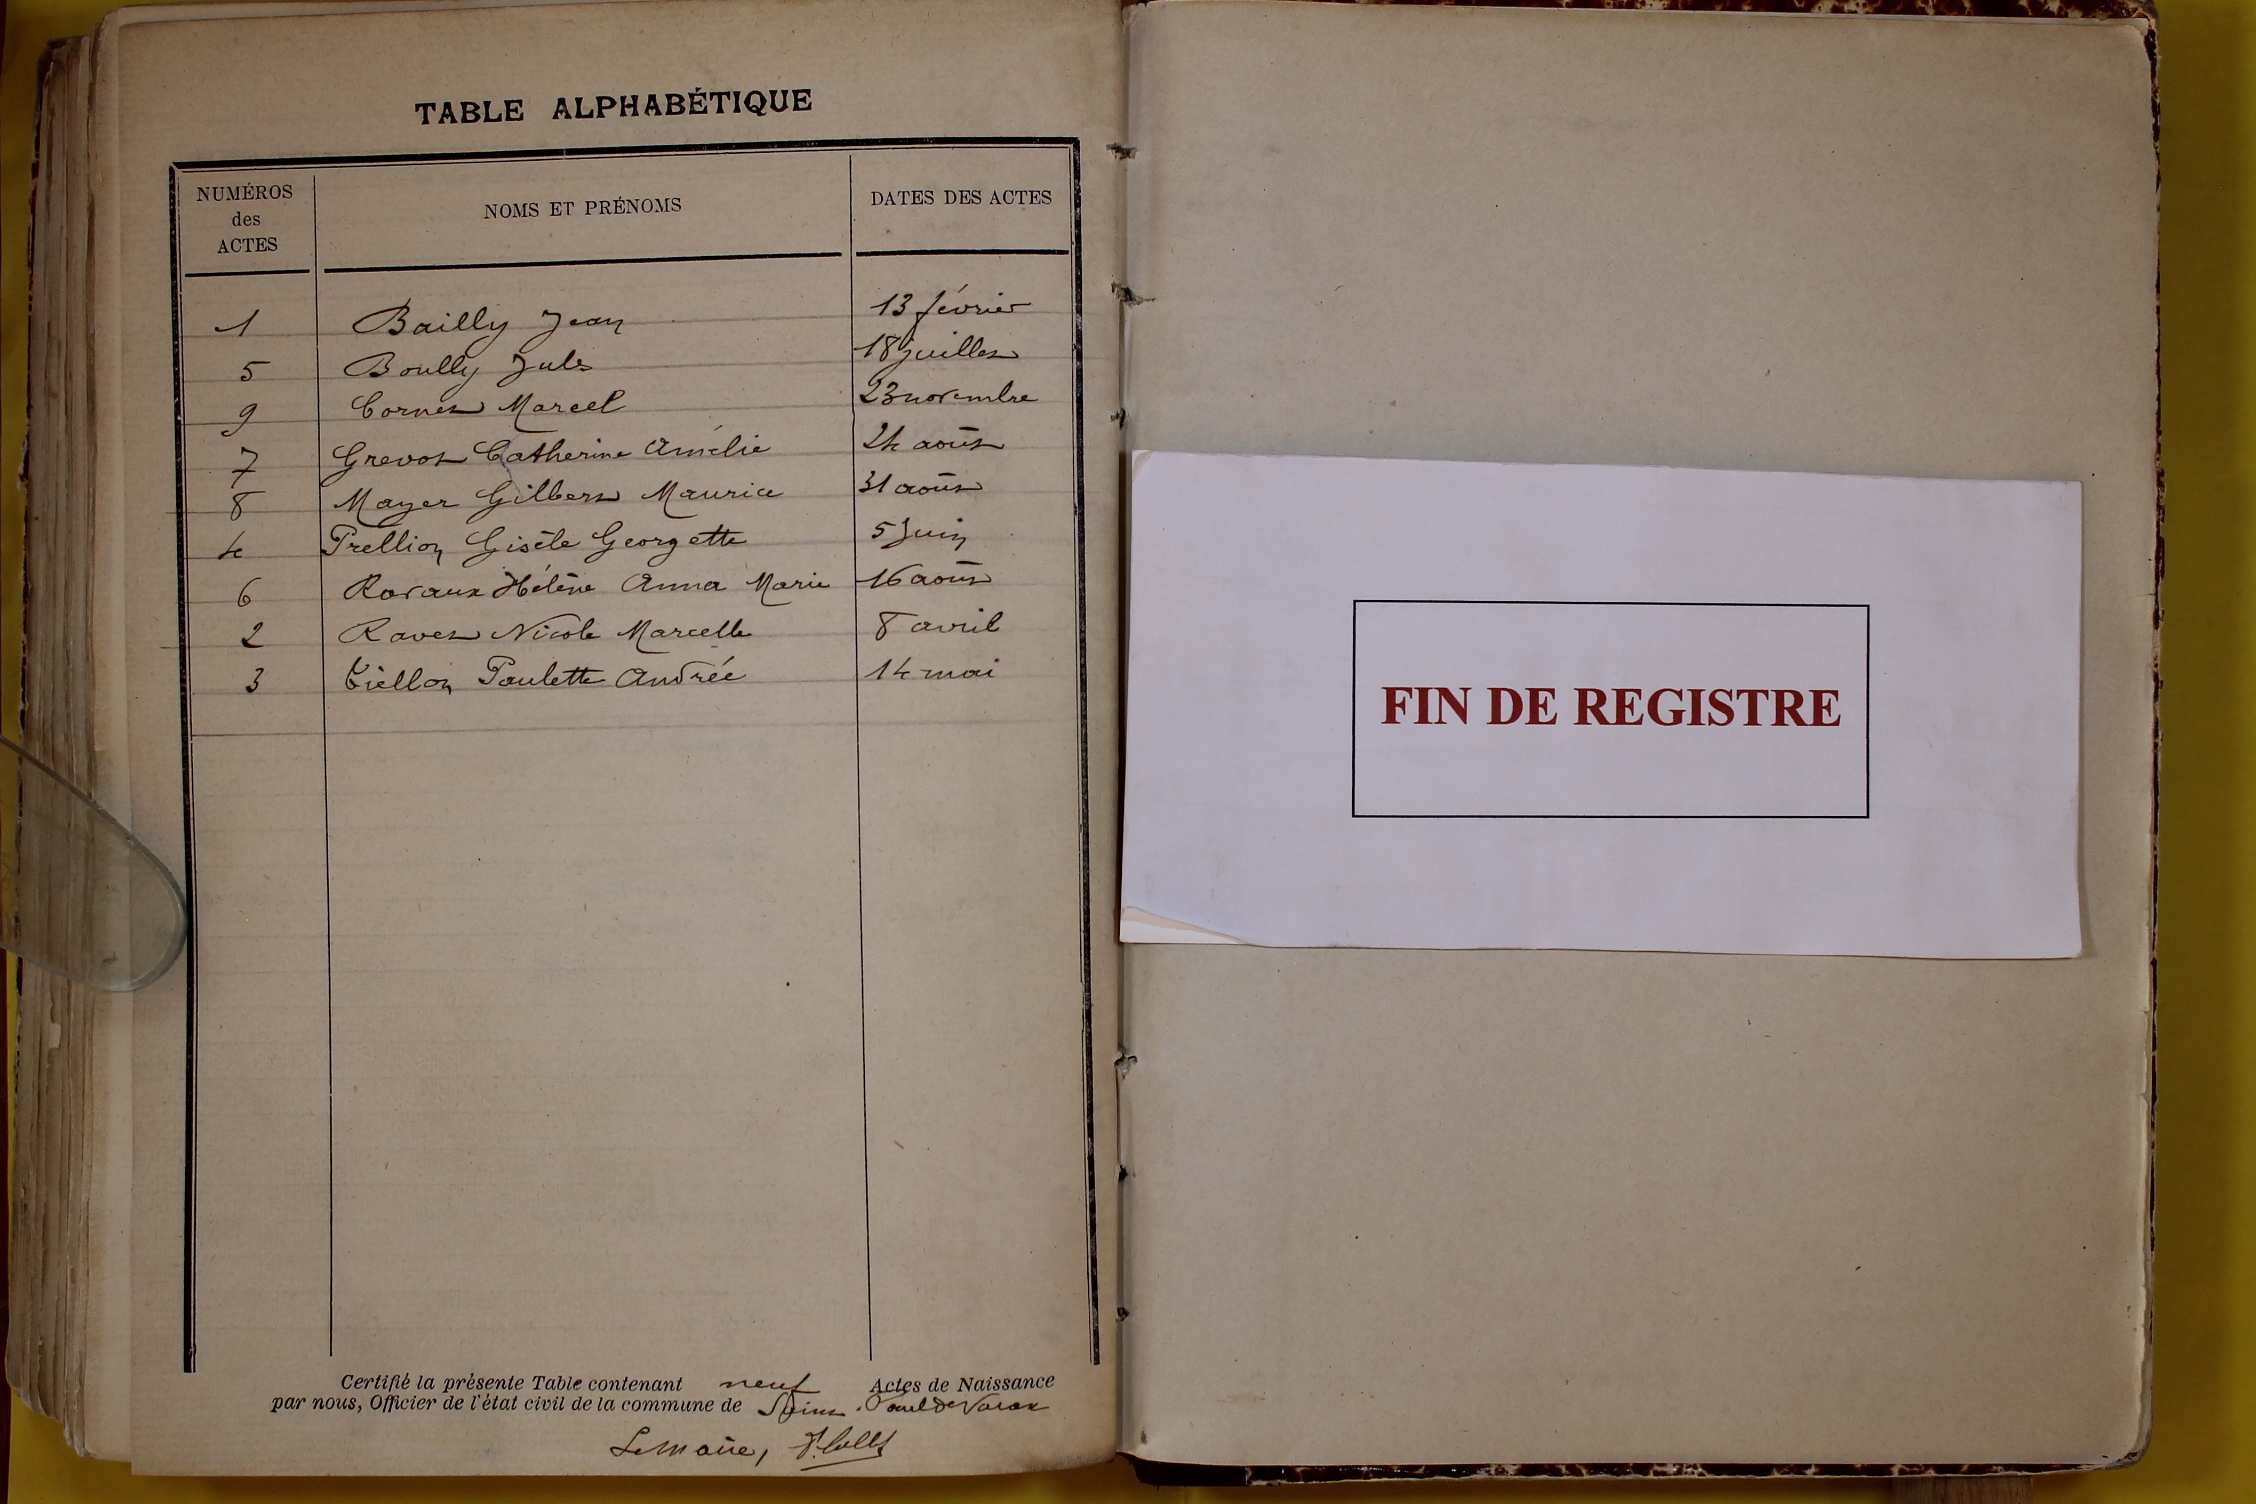 TABLE ALPHABÉTIQUE
NUMÉROS des ACTES NOMS ET PRÉNOMS DATES DES ACTES
1 Bailly Jean 13 février
5 Boully Jules 18 juillet
9 Cornet Marcel 23 novembre
7 Grevot Catherine Amélie 24 août
8 Mayer Gilbert Maurice 31 août
4 Prellion Gisèle Georgette 5 Juin
6 Ravaux Hélène Anna Marie 16 août
2 Ravet Nicole Marcelle 8 avril
3 Paulette Andrée 14 mai
Certifié la présente Table contenant neuf Actes de Naissance
par nous, Officier de l'état civil de la commune de Saint-Paul de Varax
Le Maire,
FIN DE REGISTRE